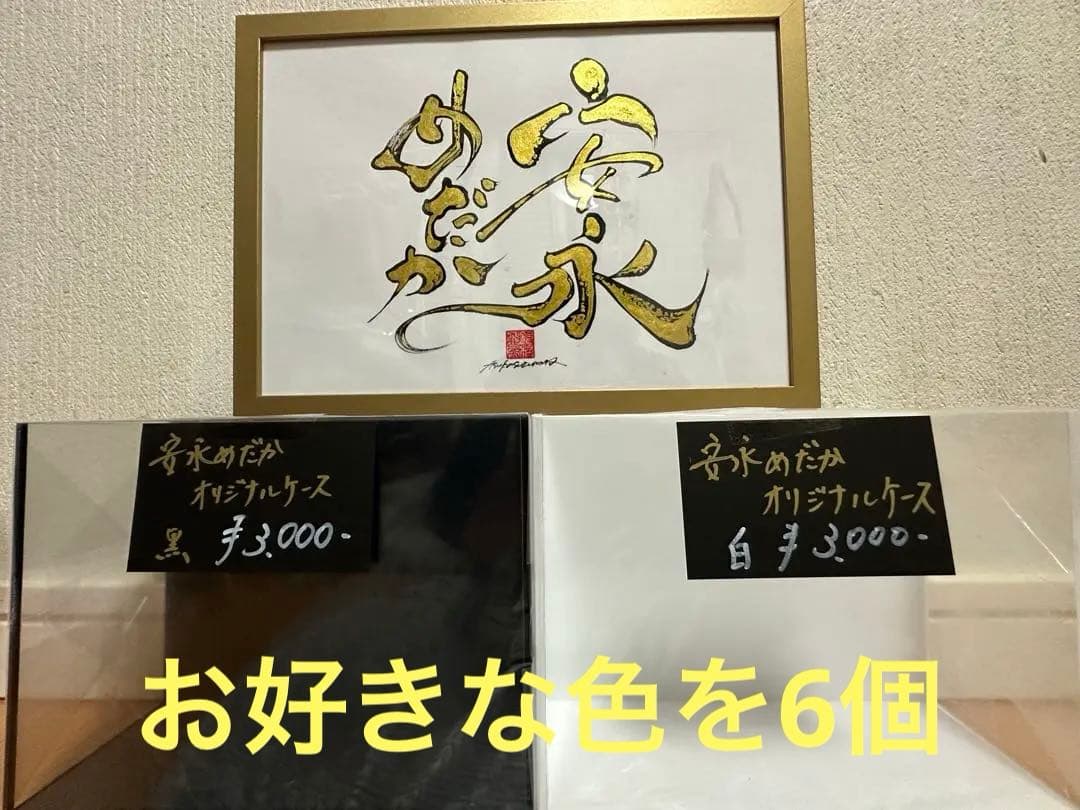 安永
めだか
安永めだか
オリジナルケース
黒 ¥3.000-
安永めだか
オリジナルケース
白 ¥3.000-
お好きな色を6個